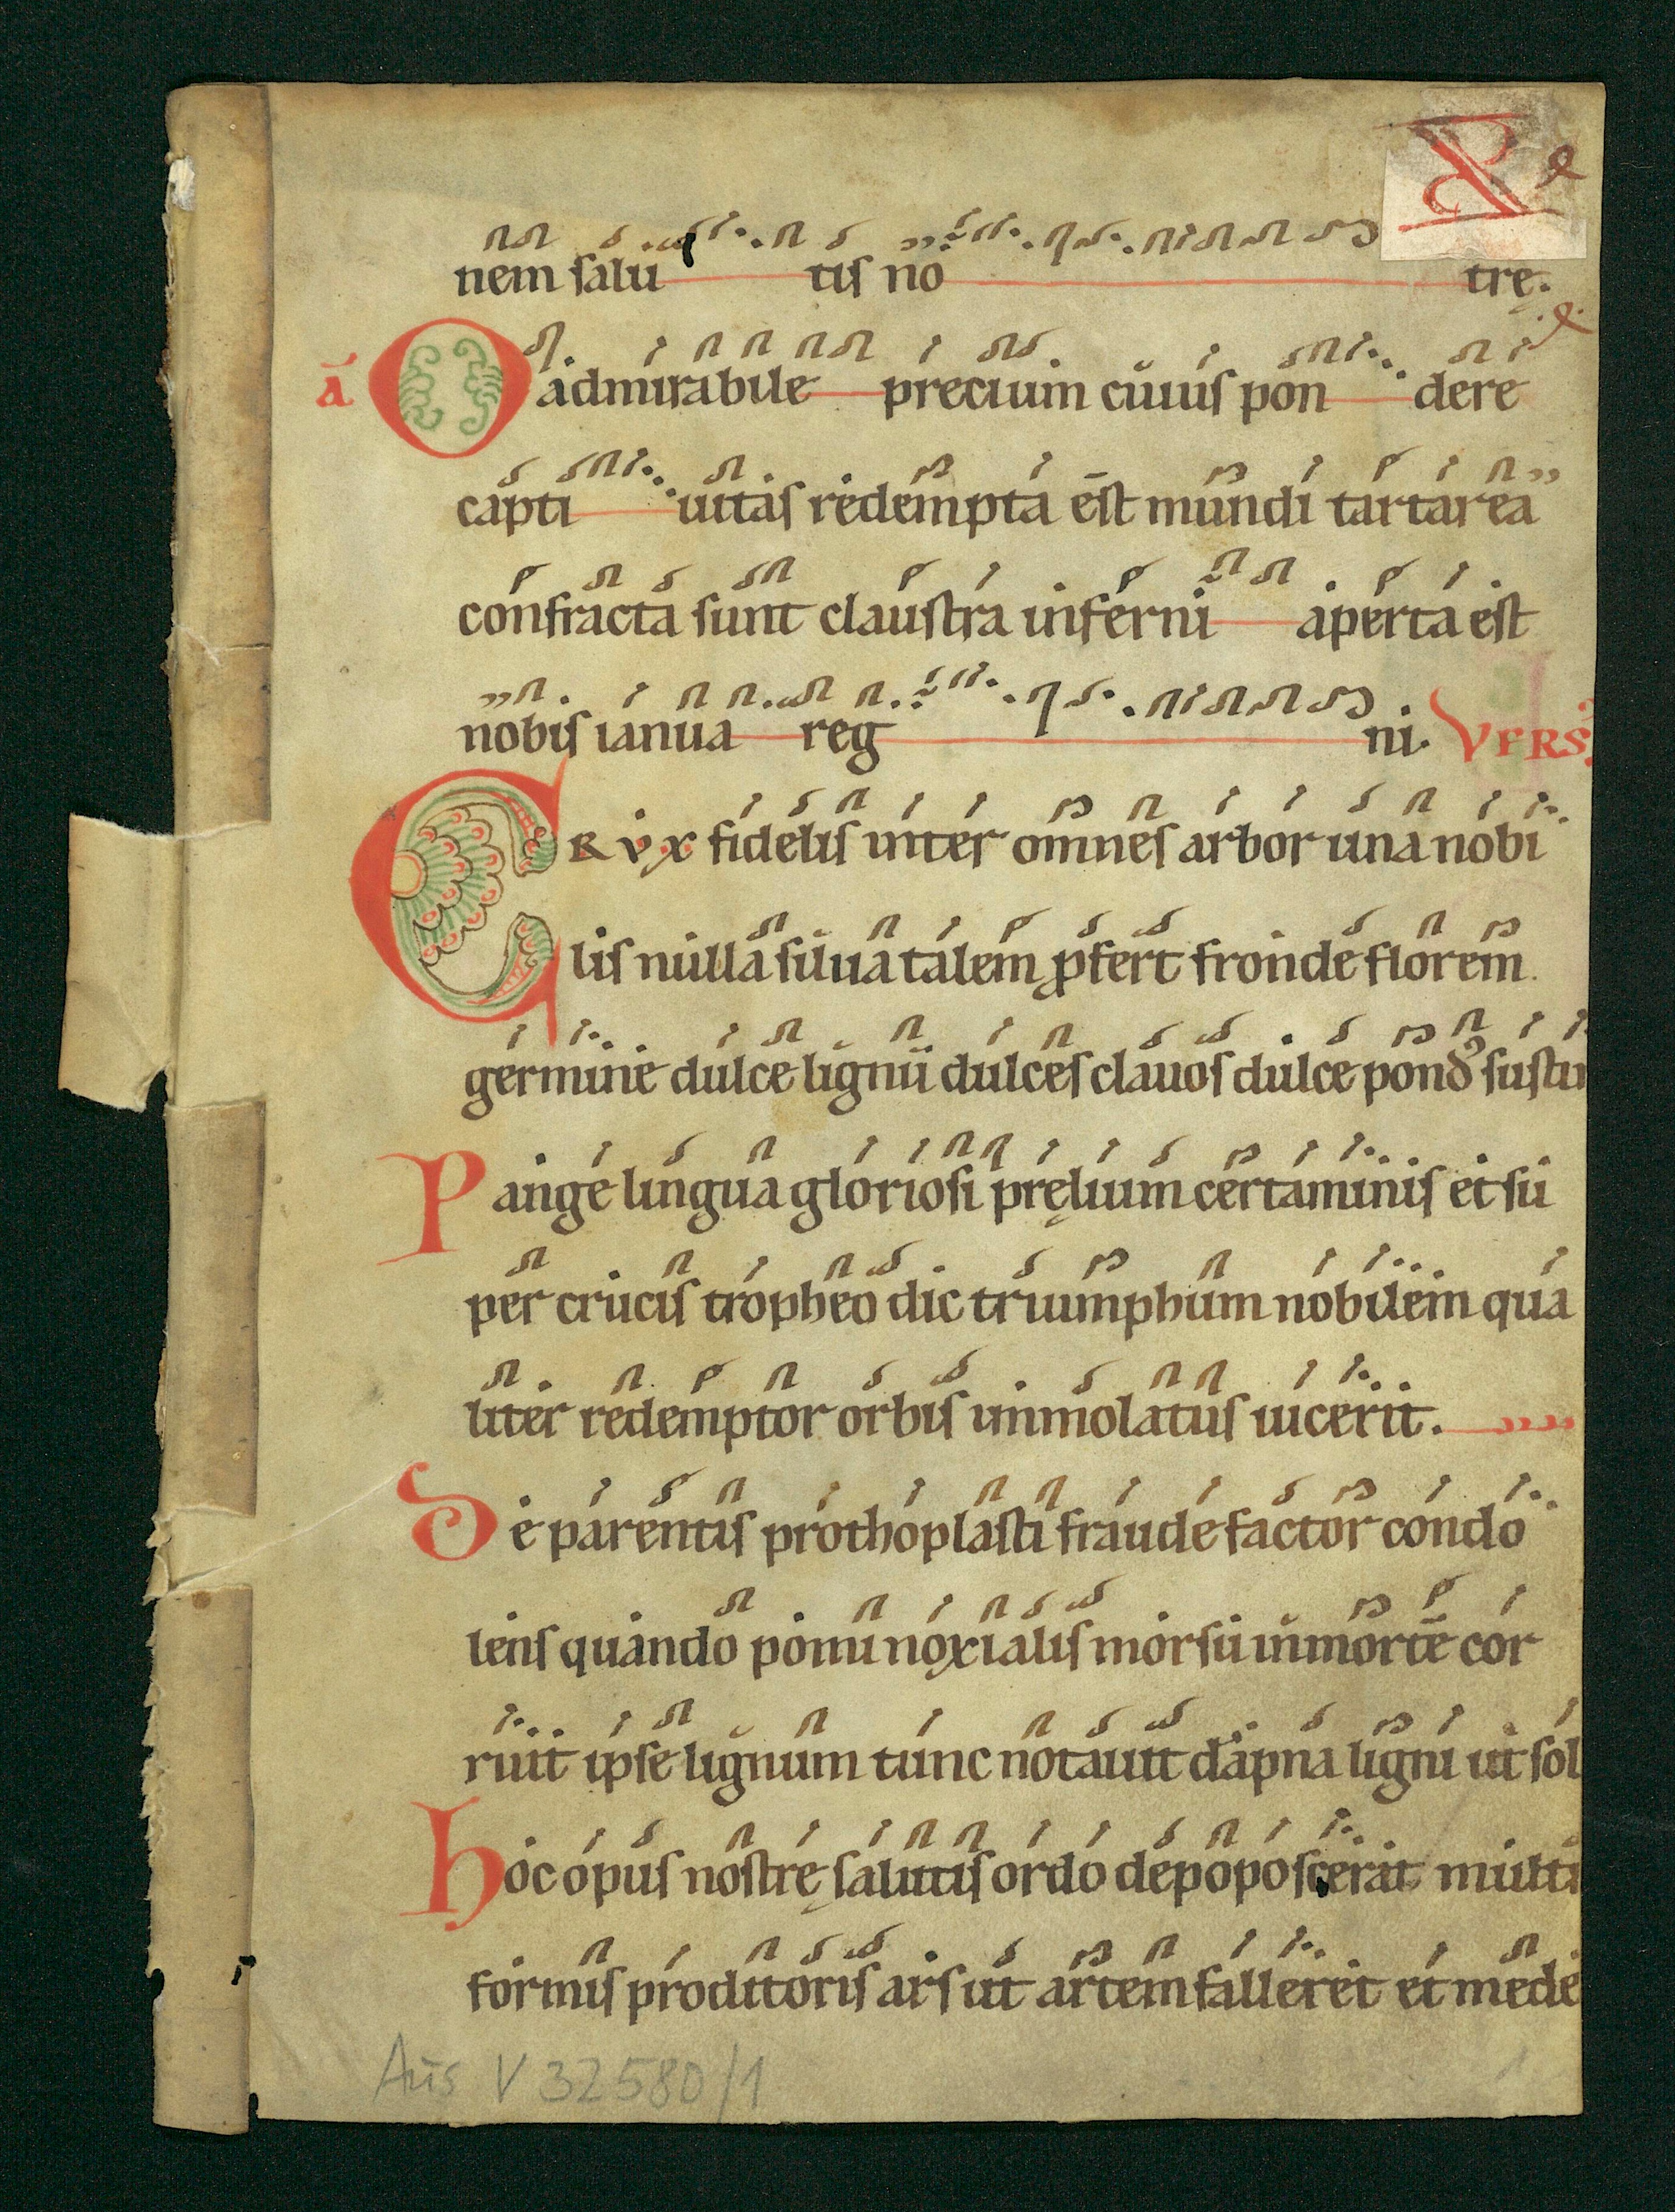 nem salu tis no trę.
ā O admirabile precium cuius pon dere
capti uitas redempta est mundi tartarea
confracta sunt claustra inferni aperta est
nobis ianua reg ni. VERS
CRVX fidelis inter omnes arbor una nobi
lis nulla silua talem ꝓfert fronde florem
germine dulce lignū dulces clauos dulce pondꝰ sustu
Pange lingua gloriosi pręlium certaminis et su
per crucis tropheo dic triumphum nobilem qua
liter redemptor orbis immolatus uicerit.
De parentis prothoplasti fraude factor condo
lens quando pomi noxialis morsu in morte cor
ruit ipse lignum tunc notauit dapna ligni ut sol
Hoc opus nostrę salutis ordo depoposcerat multi
formis proditoris ars ut artem falleret et mede
Aus V 32580/1